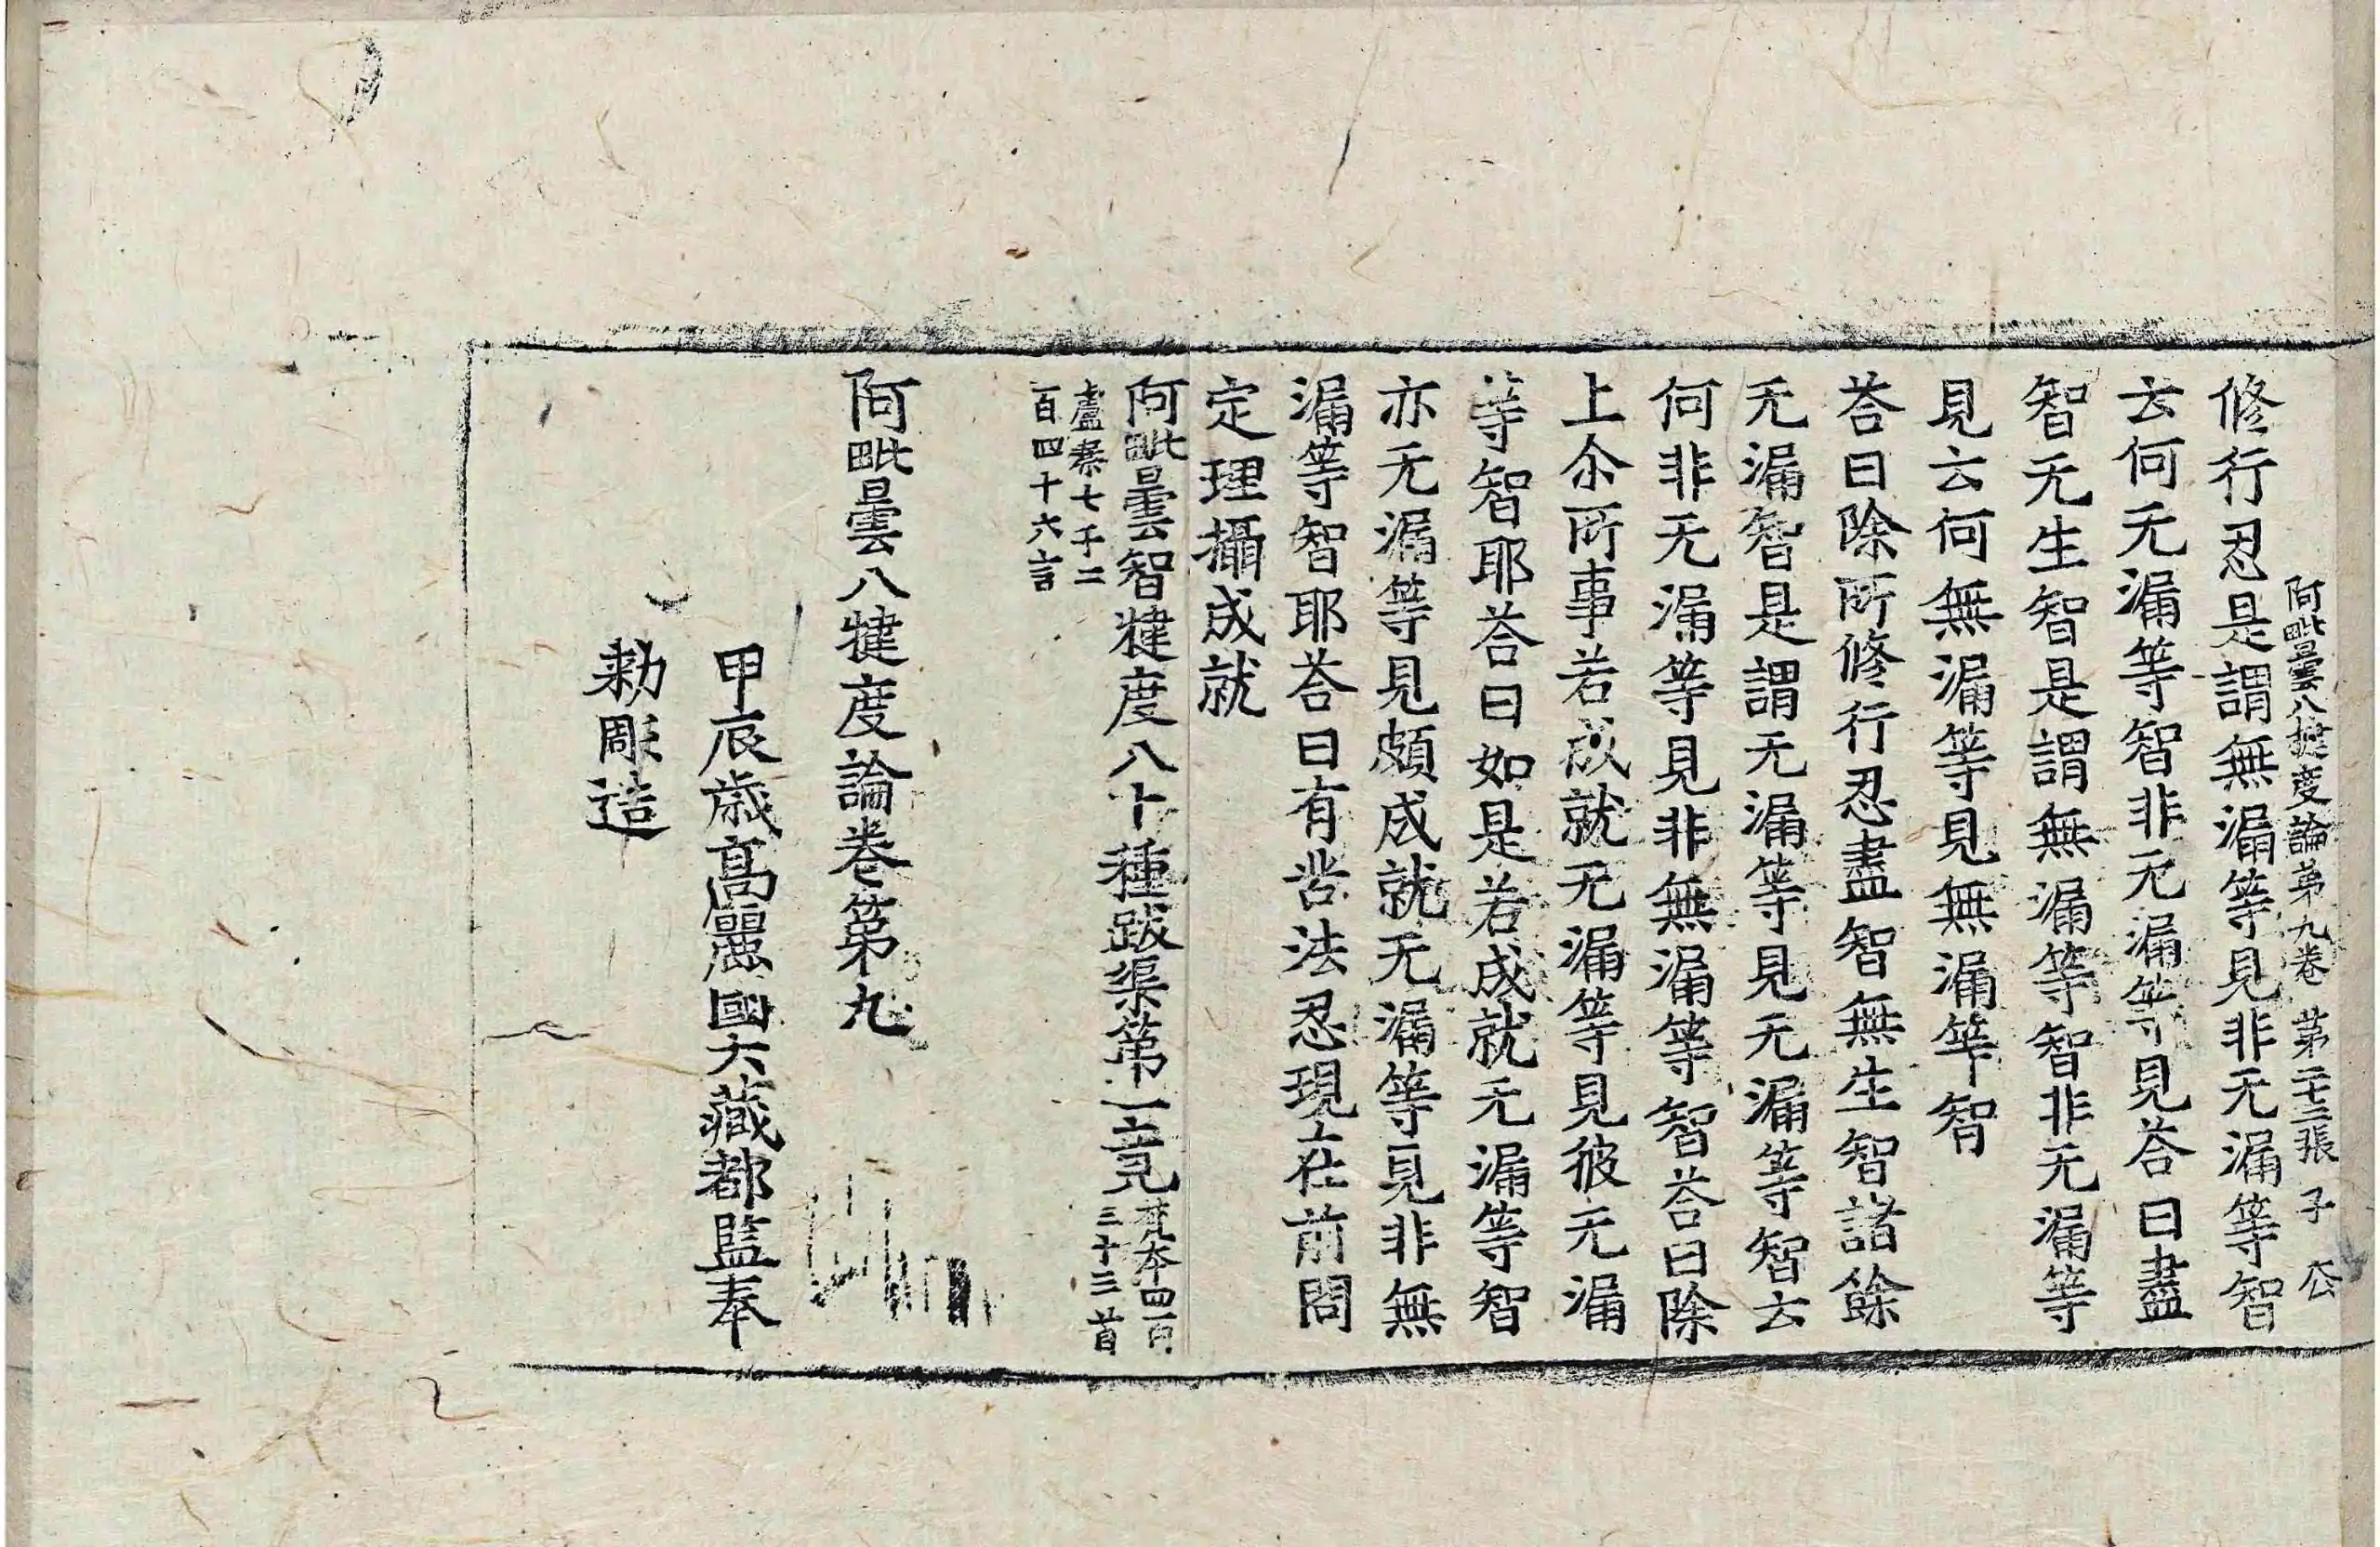 阿毗曇八揵度論第九卷 第二十二張 子
修行忍是謂無漏等見非无漏等智
云何无漏等智非无漏等見荅曰盡
智无生智是謂無漏等智非无漏等
見云何無漏等見無漏等智
荅曰除所修行忍盡智無生智諸餘
无漏智是謂无漏等見无漏等智云
何非无漏等見非無漏等智荅曰除
上尒所事若成就无漏等見彼无漏
等智耶荅曰如是若成就无漏等智
亦无漏等見頗成就无漏等見非無
漏等智耶荅曰有苦法忍現在前問
定理攝成就
阿毗曇智揵度八十種跋渠第一竟 梵本四百三十三首
盧秦七千二百四十六言
阿毗曇八揵度論卷第九
甲辰歲高麗國大藏都監奉
勑彫造